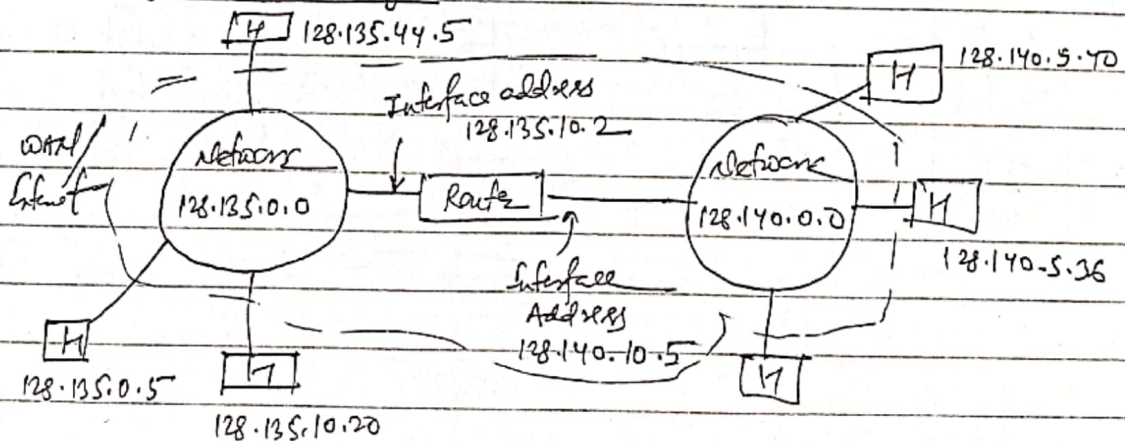 H 128.135.44.5
H 128.140.5.40
Interface address
128.135.10.2
WAN/
Network
128.135.0.0
Router
Network
128.140.0.0
H
128.140.5.36
Interface
Address
128.140.10.5
H
128.135.0.5
H
128.135.10.20
H